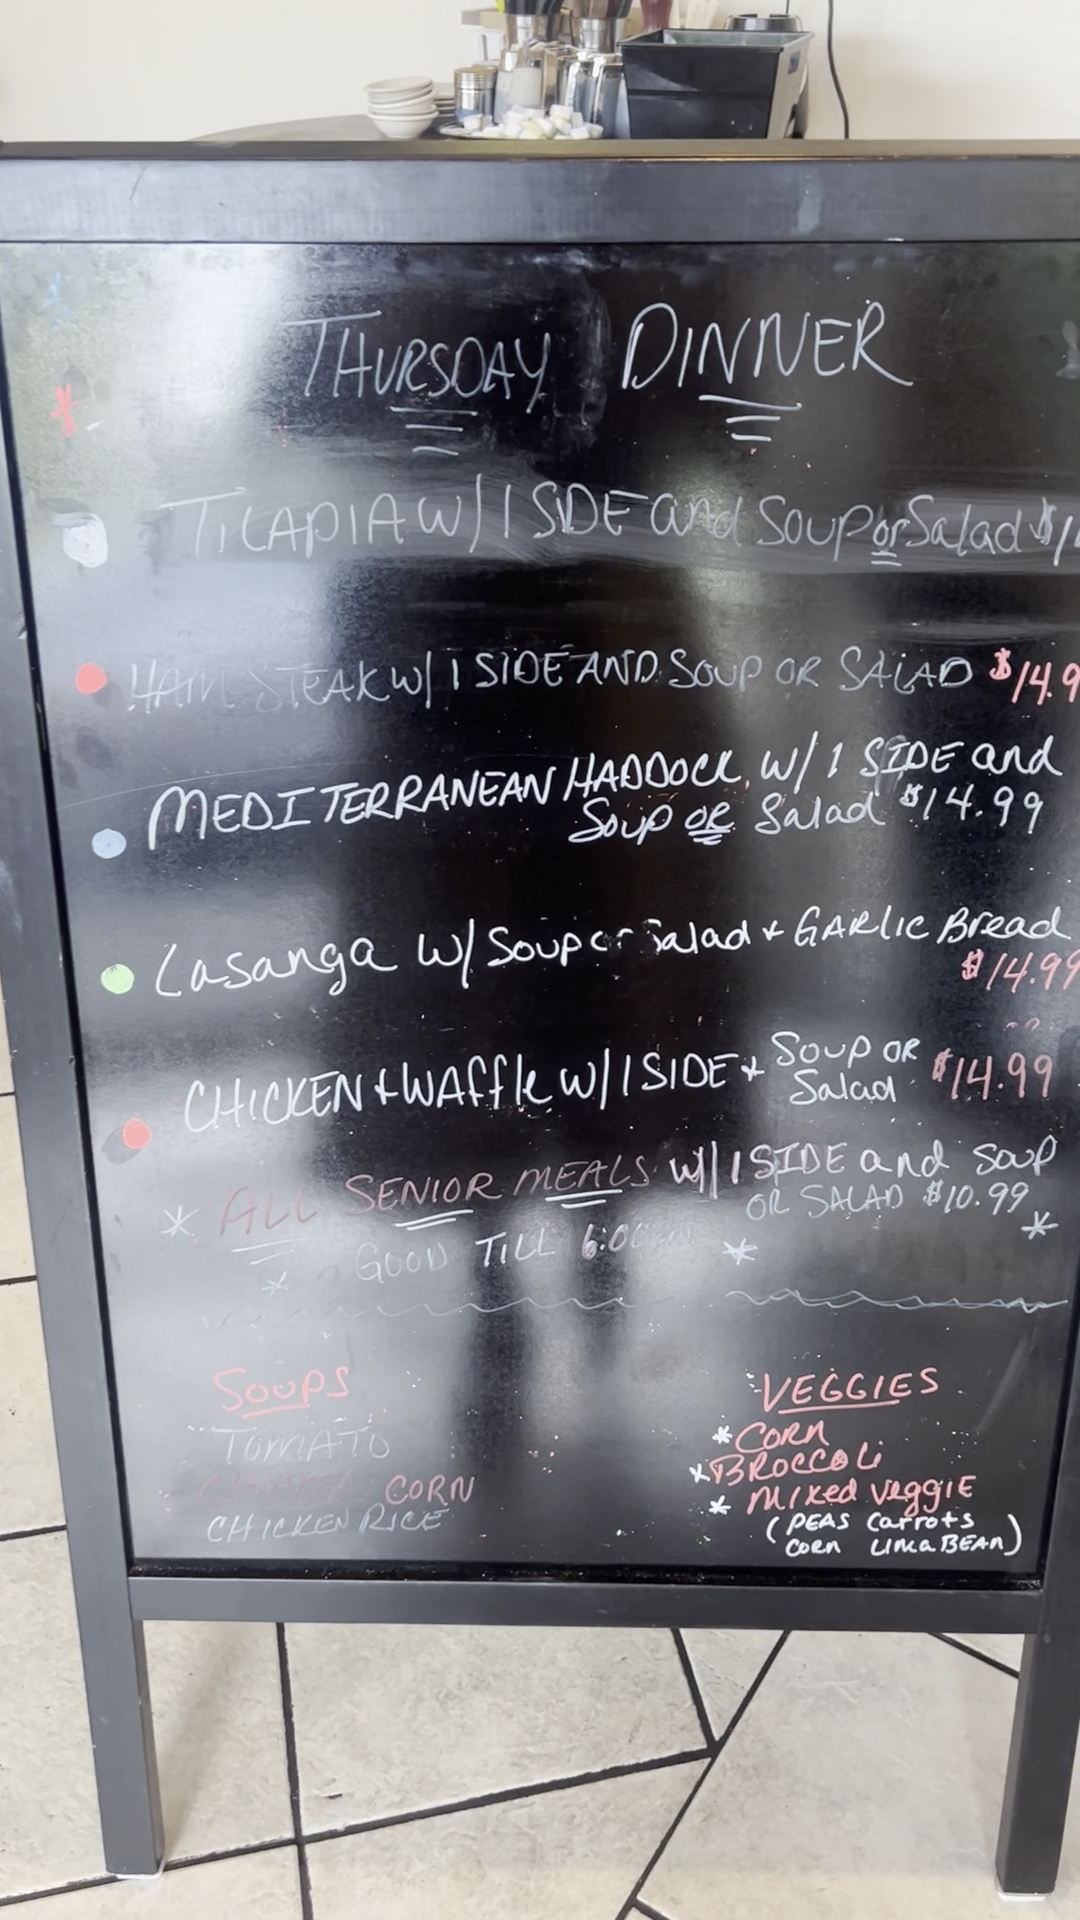 THURSDAY DINNER
TILAPIA W/ 1 SIDE and Soup or Salad $1
HAM STEAK W/ 1 SIDE AND SOUP OR SALAD $14.9
MEDITERRANEAN HADDOCK W/ 1 SIDE and
Soup OR Salad $14.99
Lasanga W/ Soup or Salad + GARLIC Bread
$14.99
CHICKEN + WAFFLE W/ 1 SIDE + SOUP OR
Salad $14.99
* ALL SENIOR MEALS W/ 1 SIDE and SOUP
OR SALAD $10.99 *
* GOOD TILL 6:00 *
SOUPS
TOMATO
CORN
CHICKEN RICE
VEGGIES
* CORN
* BROCCOLI
* MIXED VEGGIE
(PEAS CARROTS
CORN LIMA BEAN)